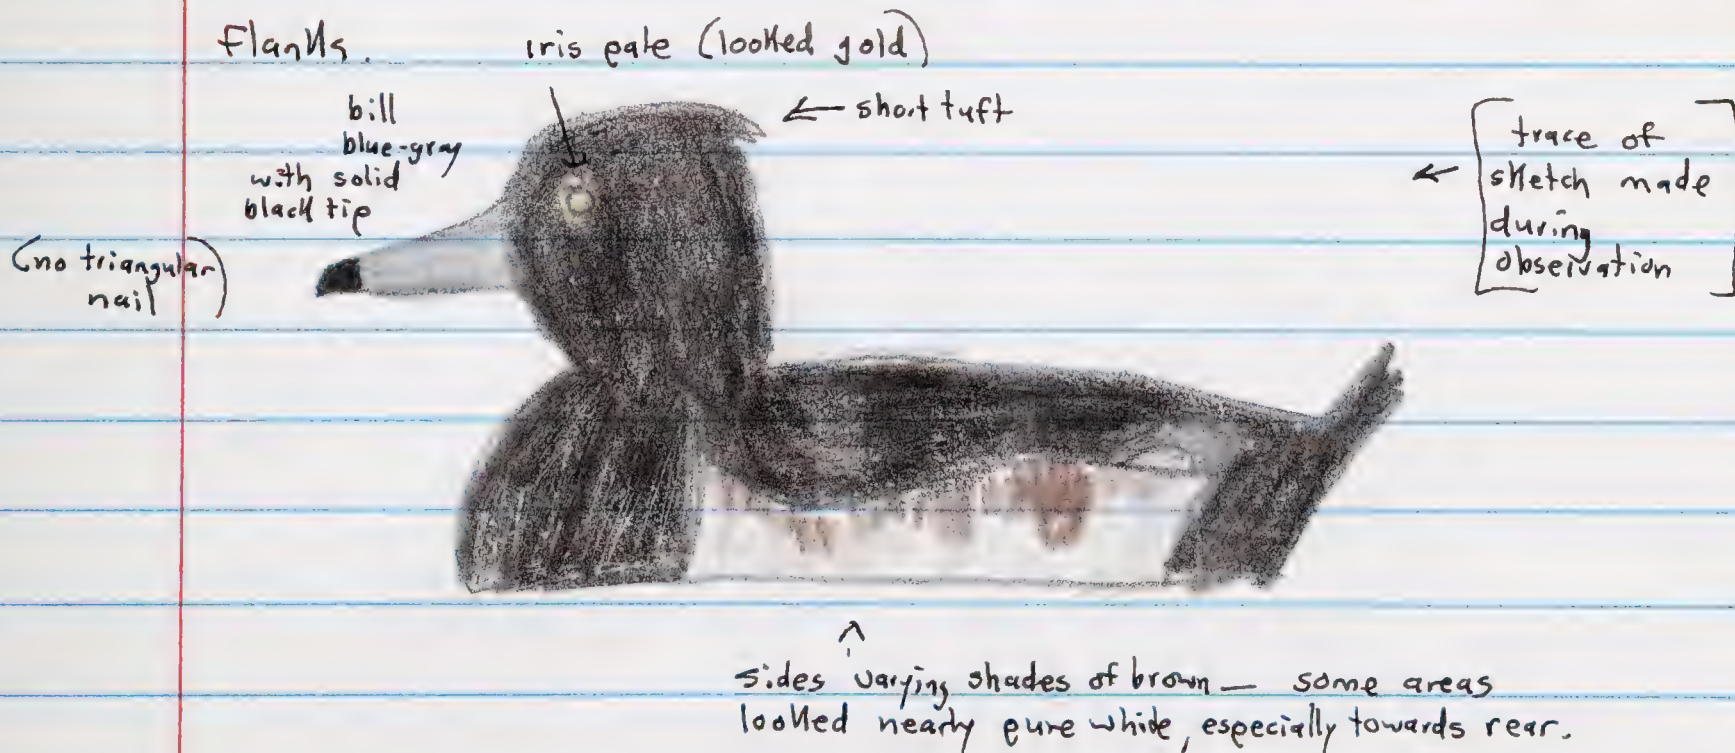 Flanks.
iris pale (looked gold)
bill
blue-gray
with solid
black tip
(no triangular
nail)
← short tuft
← [trace of
sketch made
during
observation]
sides varying shades of brown — some areas
looked nearly pure white, especially towards rear.